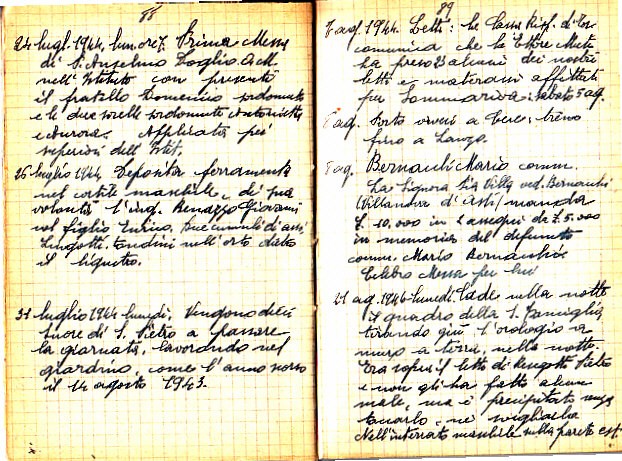 88
24 lugl. 1944. lun. ore 7. Prima Messa
di S. Anselmo
nell'Istituto con presenti
il fratello Domenico sordomuto
e le due sorelle sordomute Antonietta
e Aurora. Applicata pei
superiori dell'Ist.
26 luglio 1944 Deposita ferramenta
nel cortile maschile, di sua
volontà l'ing. Benazzo Giovanni
col figlio Enrico. Due cumuli di assi
lunghetti. tondini nell'orto dato
il
31 luglio 1944 lunedì. Vengono dieci
suore di S. Pietro a passare
la giornata, lavorando nel
giardino, come l'anno scorso
il 14 agosto 1943.
89
ag. 1944. Letti: la Cassa Risp. di Tor.
comunica che la Ettore Muti
ha preso 23 alcuni dei nostri
letti e materassi affittati
per Sommariva: sabato 5 ag.
ag. Porto viveri a Ceres: treno
fino a Lanzo.
ag. Bernardi Mario comm.
La Signora Pia Villa ved. Bernardi
(Villanova d'Asti) manda
£. 10.000 in 2 assegni da £. 5.000
in memoria del defunto
comm. Mario Bernardi
Celebro Messa per lui
21 ag. 1944 lunedì. Cade nella notte
il quadro della S. Famiglia
tirando giù l'orologio a
muro a terra, nella notte.
Era sopra il letto di Pietro
e non gli ha fatto alcun
male, ma è precipitato senza
toccarlo, nè svegliarlo
Nell'internato maschile sulla parete est.